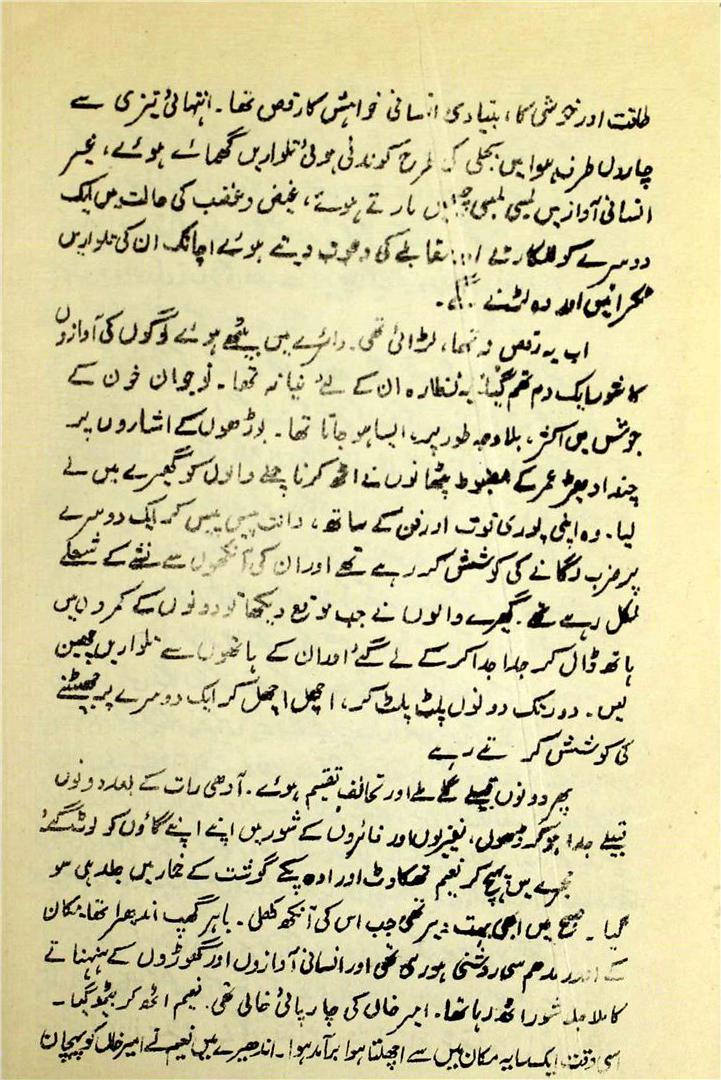 طاقت اور خوشی کا، بنیادی انسانی خواہش کا رقص تھا۔ انتہائی تیزی سے
چاروں طرف ہوا میں بجلی کی طرح کوندتی ہوئی تلواریں گھماتے ہوئے، غیر
انسانی آواز میں لمبی لمبی چیخیں مارتے ہوئے، غیض و غضب کی حالت میں ایک
دوسرے کو للکارتے اور مقابلے کی دعوت دیتے ہوئے اچانک ان کی تلواریں
ٹکرائیں اور وہ لڑنے لگے۔
اب یہ رقص نہ تھا، لڑائی تھی۔ دائرے میں بیٹھے ہوئے لوگوں کی آوازوں
کا شور ایک دم تھم گیا۔ یہ نظارہ ان کے لئے نیا نہ تھا۔ نوجوان خون کے
جوش میں اکثر، بلا وجہ طور پر، ایسا ہو جاتا تھا۔ بوڑھوں کے اشاروں پر
چند ادھیڑ عمر کے مضبوط پٹھانوں نے اٹھ کر ناچنے والوں کو گھیرے میں لے
لیا۔ وہ اپنی پوری قوت اور فن کے ساتھ، دانت پیس پیس کر ایک دوسرے
پر ضرب لگانے کی کوشش کر رہے تھے اور ان کی آنکھوں سے نشے کے شعلے
نکل رہے تھے۔ گھیرے والوں نے جب موقع دیکھا تو دونوں کے کمروں میں
ہاتھ ڈال کر جدا جدا کر کے لے گئے اور ان کے ہاتھوں سے تلواریں چھین
لیں۔ دور تک دونوں پلٹ پلٹ کر، اچھل اچھل کر ایک دوسرے پر جھپٹنے
کی کوشش کرتے رہے
پھر دونوں قبیلے گلے ملے اور تحائف تقسیم ہوئے۔ آدھی رات کے بعد دونوں
قبیلے جدا ہو کر ڈھول، نفیریوں اور فائروں کے شور میں اپنے اپنے گاؤں کو لوٹ گئے
حجرے میں پہنچ کر نعیم تھکاوٹ اور ادھ پکے گوشت کے خمار میں جلد ہی سو
گیا۔ صبح میں ابھی بہت دیر تھی جب اس کی آنکھ کھلی۔ باہر گھپ اندھرا تھا۔ مکان
کے اندر مدھم سی روشنی ہو رہی تھی اور انسانی آوازوں اور گھوڑوں کے ہنہنانے
کا ملا جلا شور اٹھ رہا تھا۔ امیر خاں کی چارپائی خالی تھی۔ نعیم اٹھ کر بیٹھ گیا۔
اسی وقت ایک سایہ مکان میں سے اچھلتا ہوا برآمد ہوا۔ اندھیرے میں نعیم نے امیر خاں کو پہچان